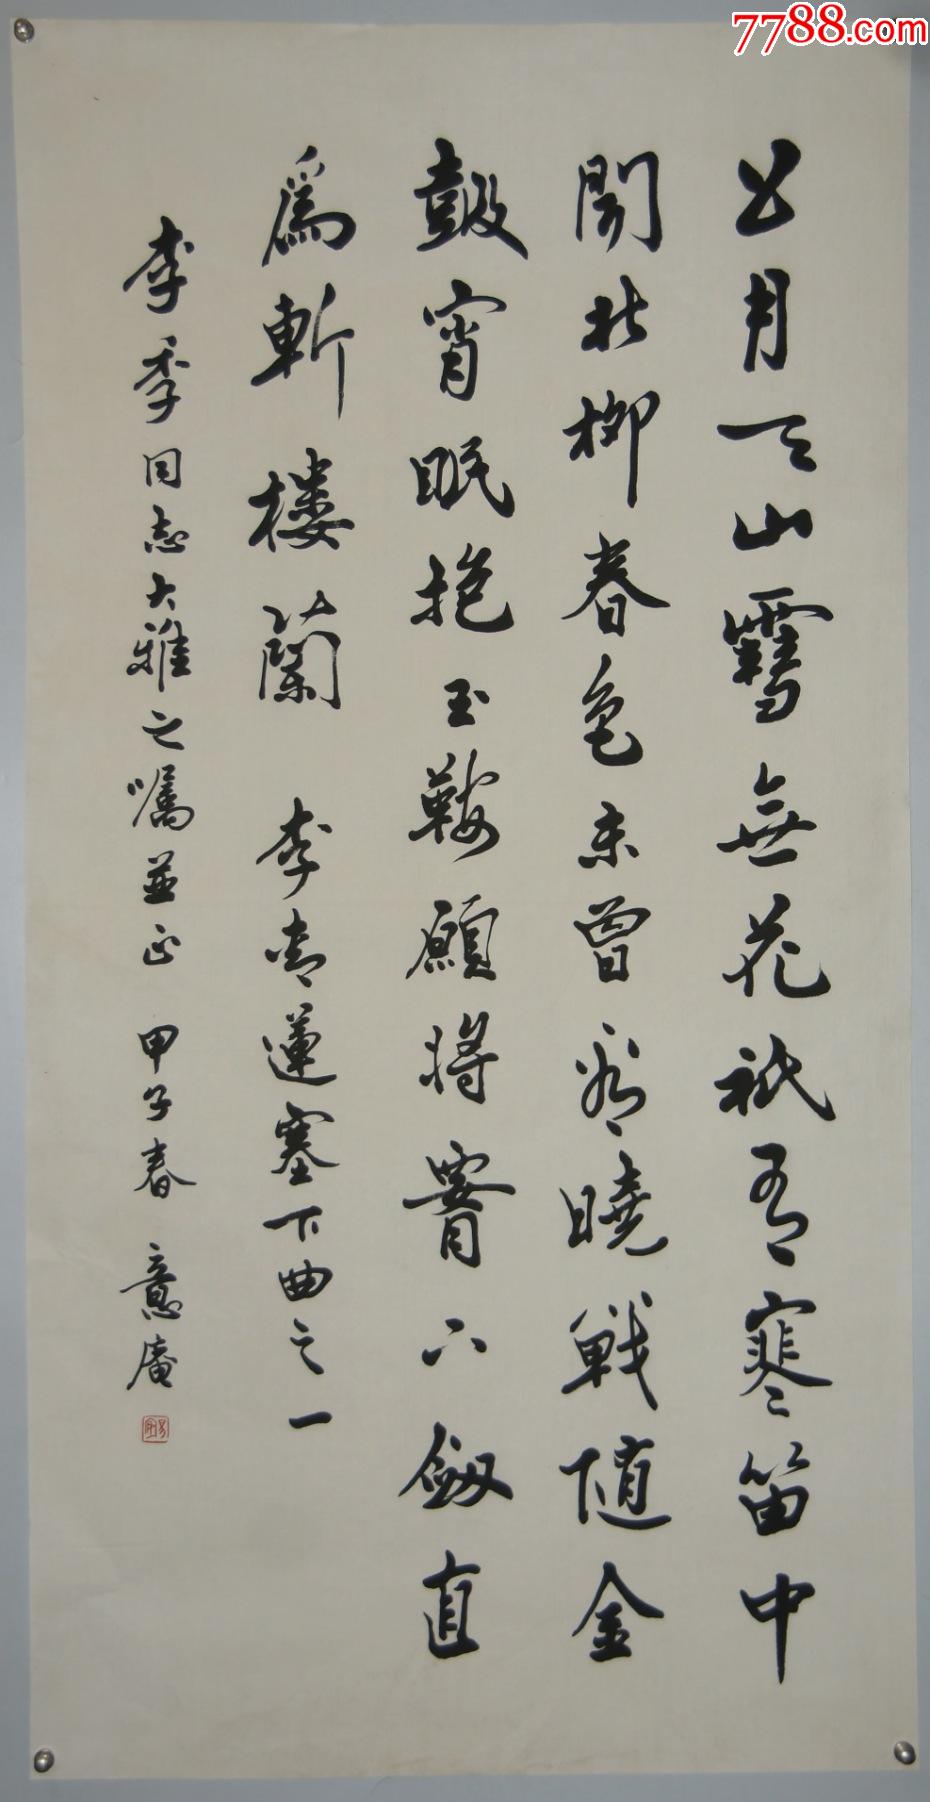 7788.com
五月天山雪無花祇有寒笛中
聞折柳春色未曾看曉戰隨金
皷宵眠抱玉鞍願將腰下劔直
爲斬樓蘭 李青蓮塞下曲之一
李季同志大雅之嘱並正 甲子春 意庵